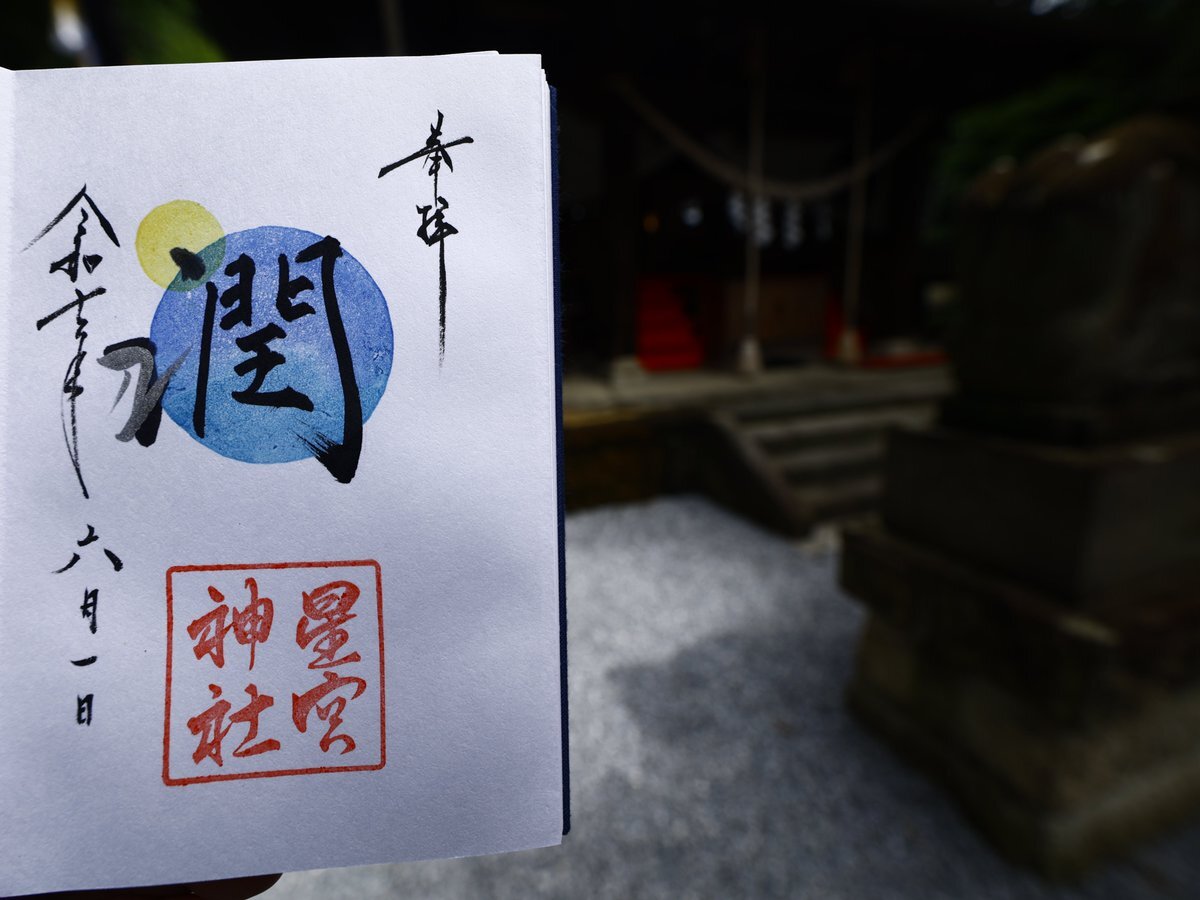 奉拝
潤
令和七年六月一日
星宮
神社